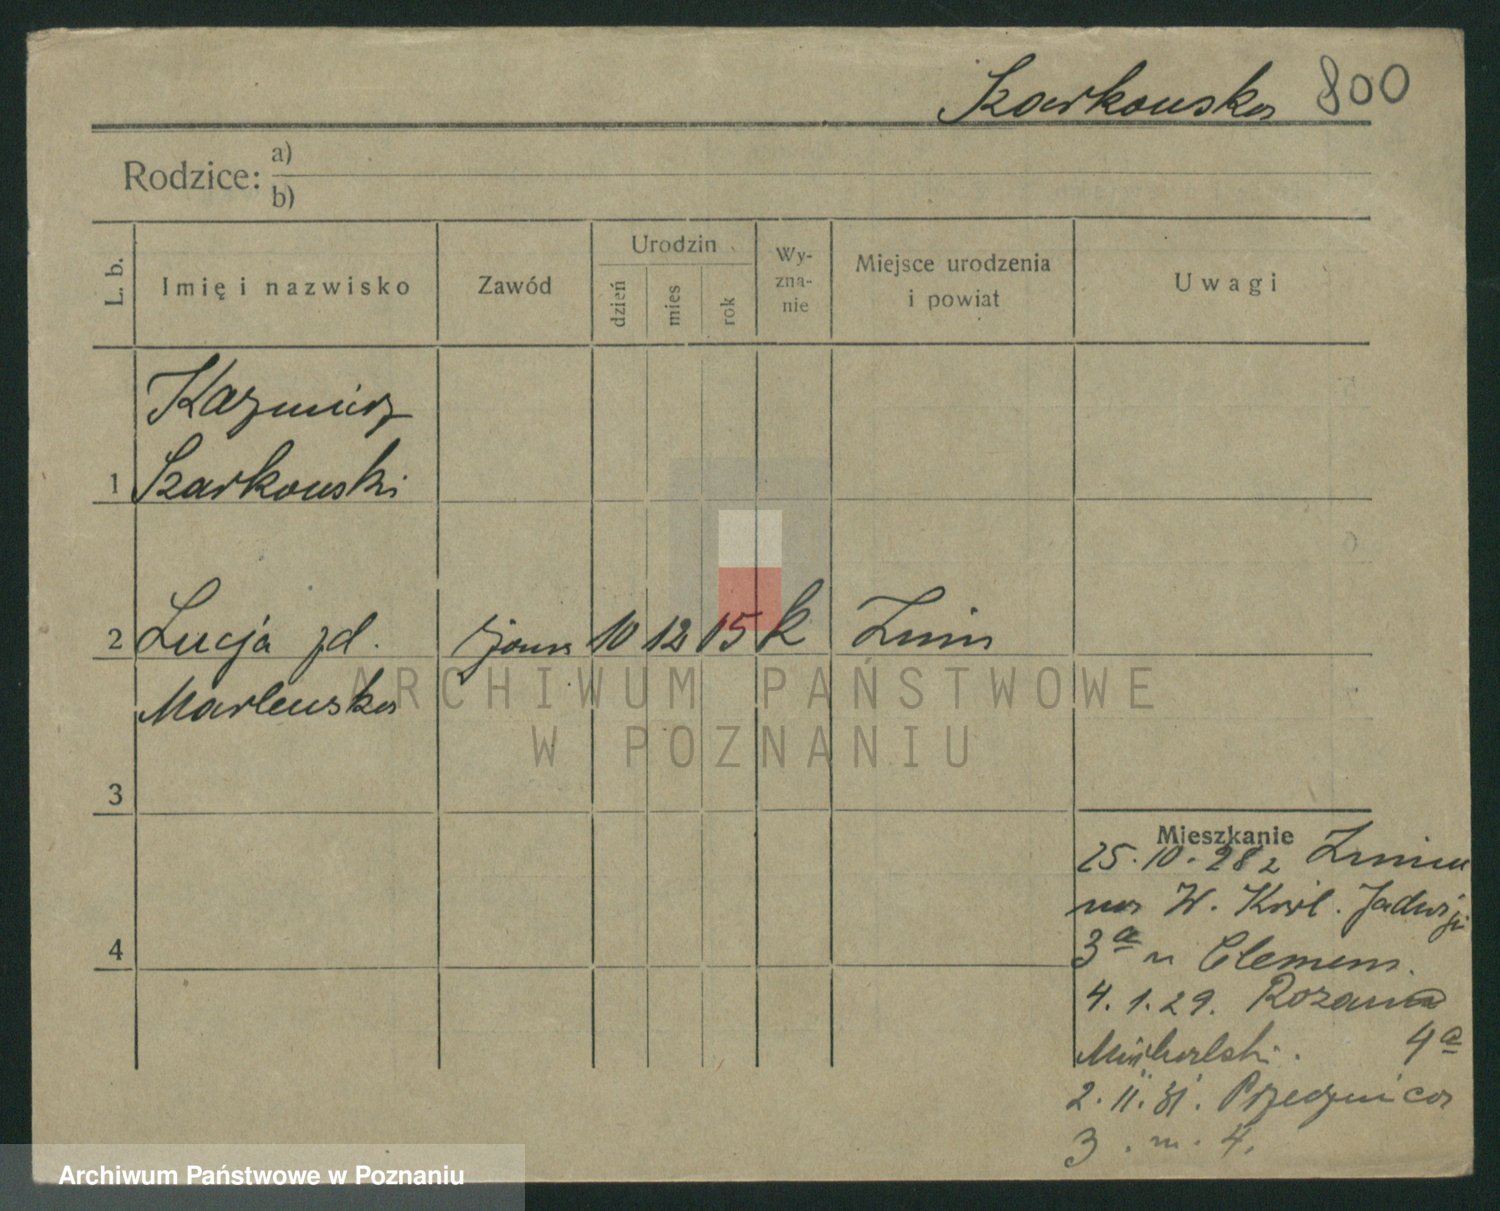 Szarkowska 800
Rodzice: a)
b)
L. b. Imię i nazwisko Zawód Urodzin dzień mies rok Wy-zna-nie Miejsce urodzenia i powiat Uwagi
Kazmierz
1 Szarkowski
2 Lucja zd. żona 10 12 15 k Znin
Marlewska
3
4
Mieszkanie
25.10.28 z Znina
na W. Król. Jadwigi
3a u Clemens.
4.1.29.
4a
2.11.31. Przecznica
3. m. 4.
ARCHIWUM PAŃSTWOWE
W POZNANIU
Archiwum Państwowe w Poznaniu